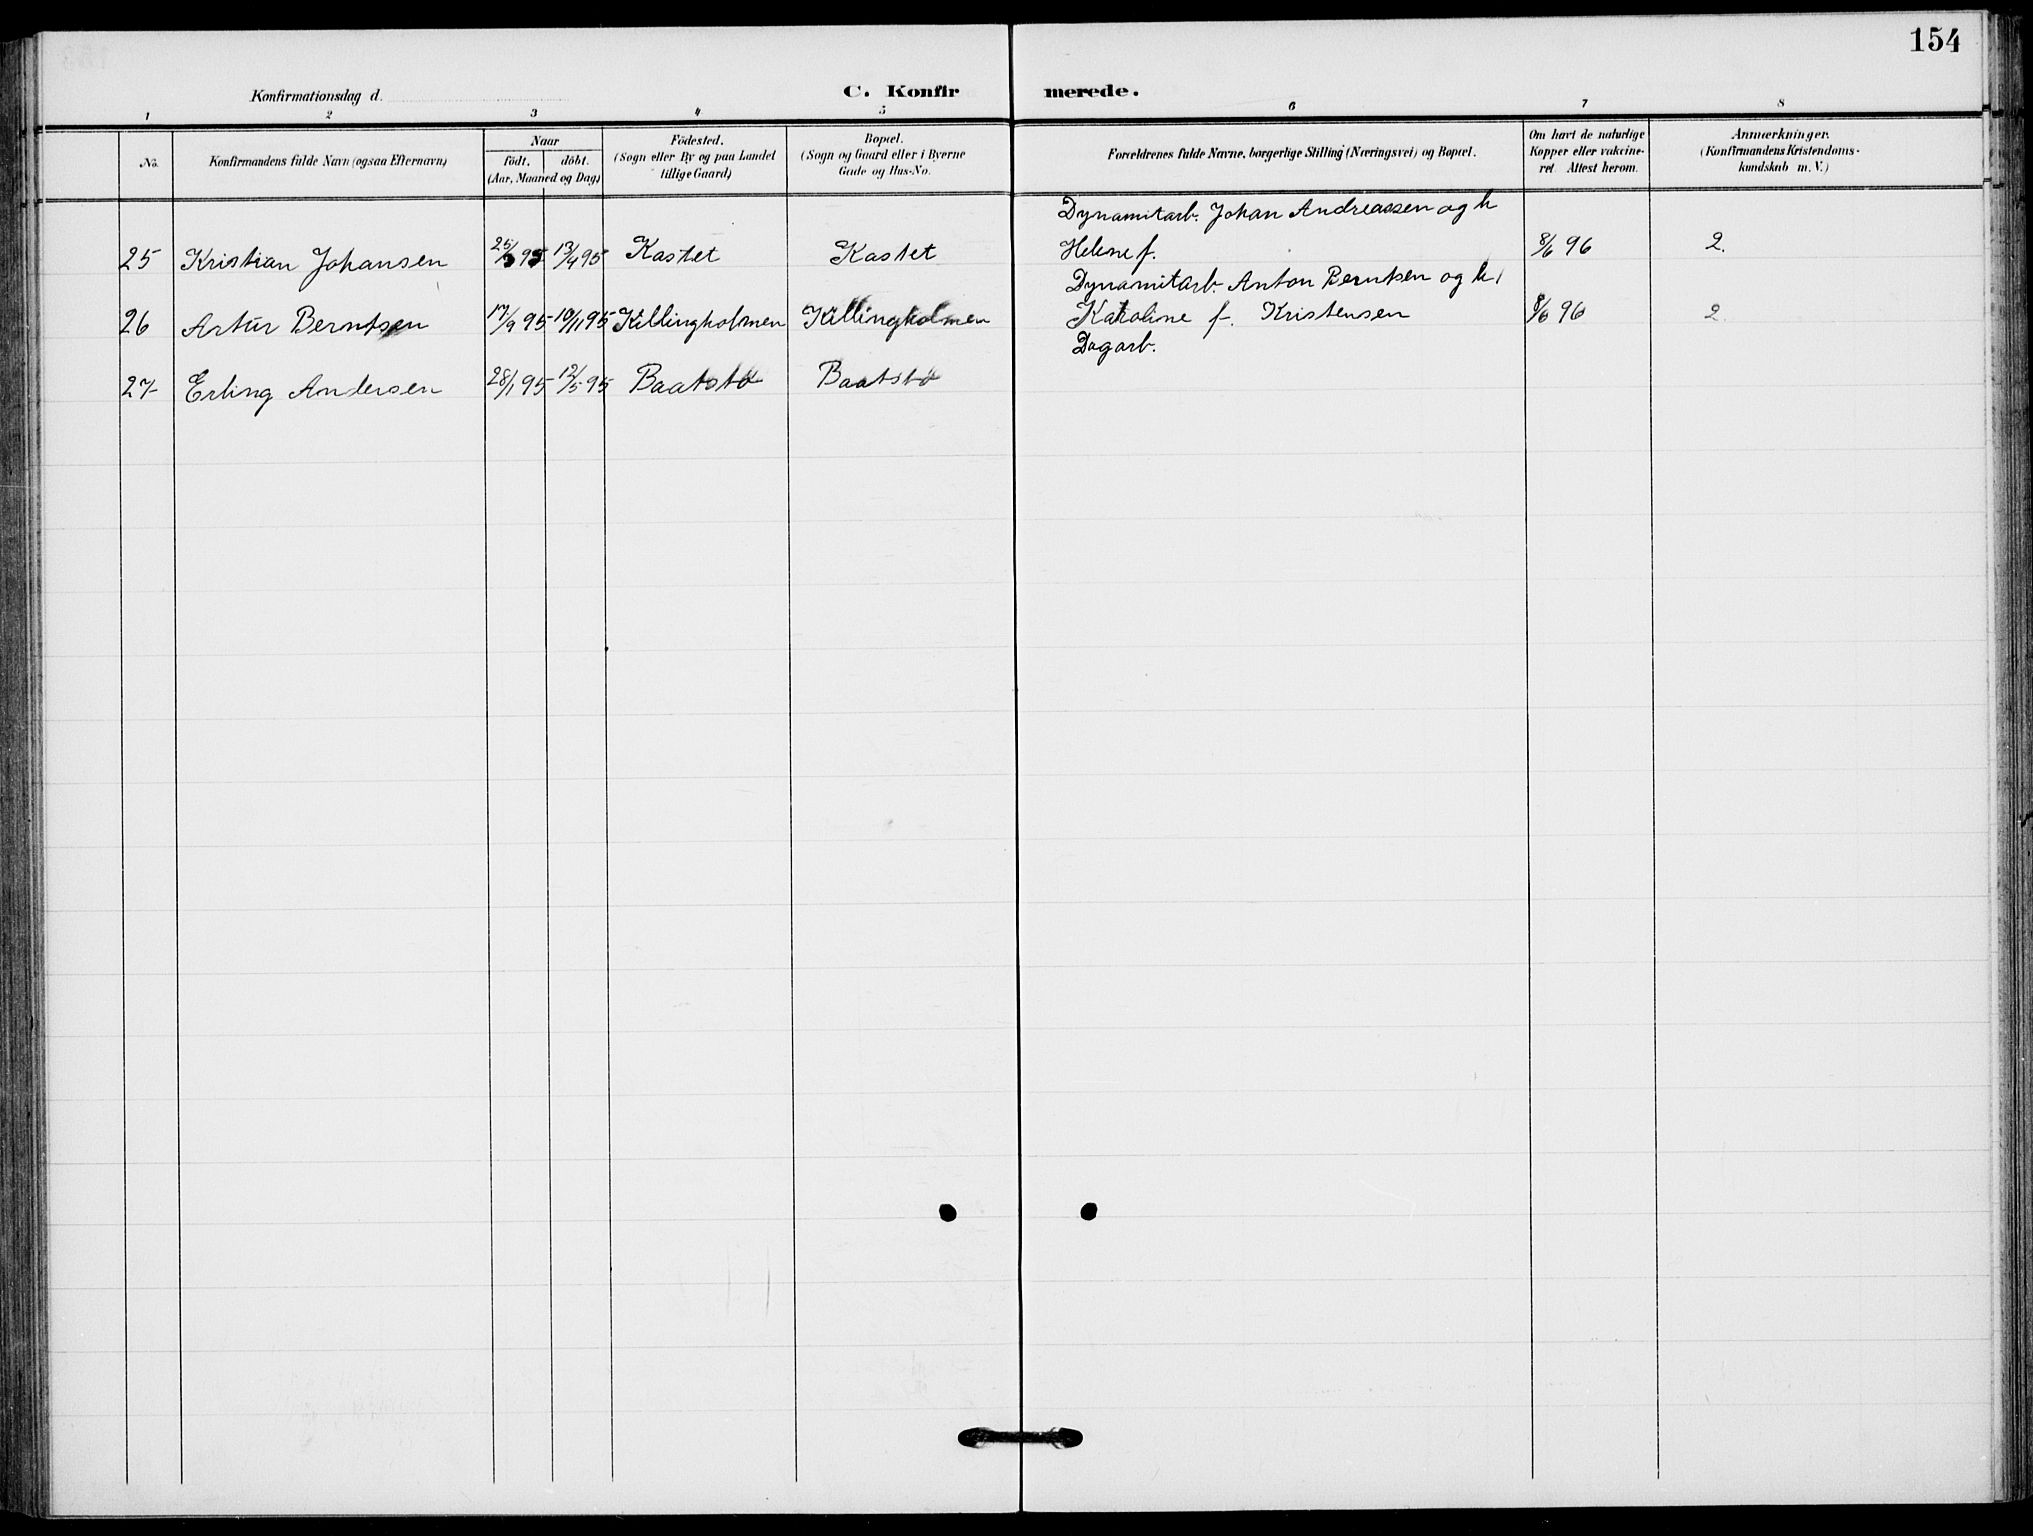 154
Konfirmationsdag d.
C. Konfirmerede.
1 2 3 4 5 6 7 8
No.
Konfirmandens fulde Navn (ogsaa Efternavn)
Naar
födt. döbt.
(Aar, Maaned og Dag)
Födested.
(Sogn eller By og paa Landet
tillige Gaard)
Bopæl.
(Sogn og Gaard eller i Byerne
Gade og Hus-No.
Forældrenes fulde Navne, borgerlige Stilling (Næringsvei) og Bopæl.
Om havt de naturlige
Kopper eller vakcine-
ret. Attest herom.
Anmærkninger.
(Konfirmandens Kristendoms-
kundskab m. V.)
Dynamitarb. Johan Andreassen og h
25 Kristian Johansen 25/3 95 13/4 95 Kastet Kastet Helene f. 8/6 96 2.
Dynamitarb. Anton Berntsen og h.
26 Artur Berntsen 17/9 95 10/11 95 Killingholmen Killingholmen Karoline f. Kristensen 8/6 96 2.
Dagarb.
27 Erling Andersen 28/1 95 12/5 95 Baatstø Baatstø